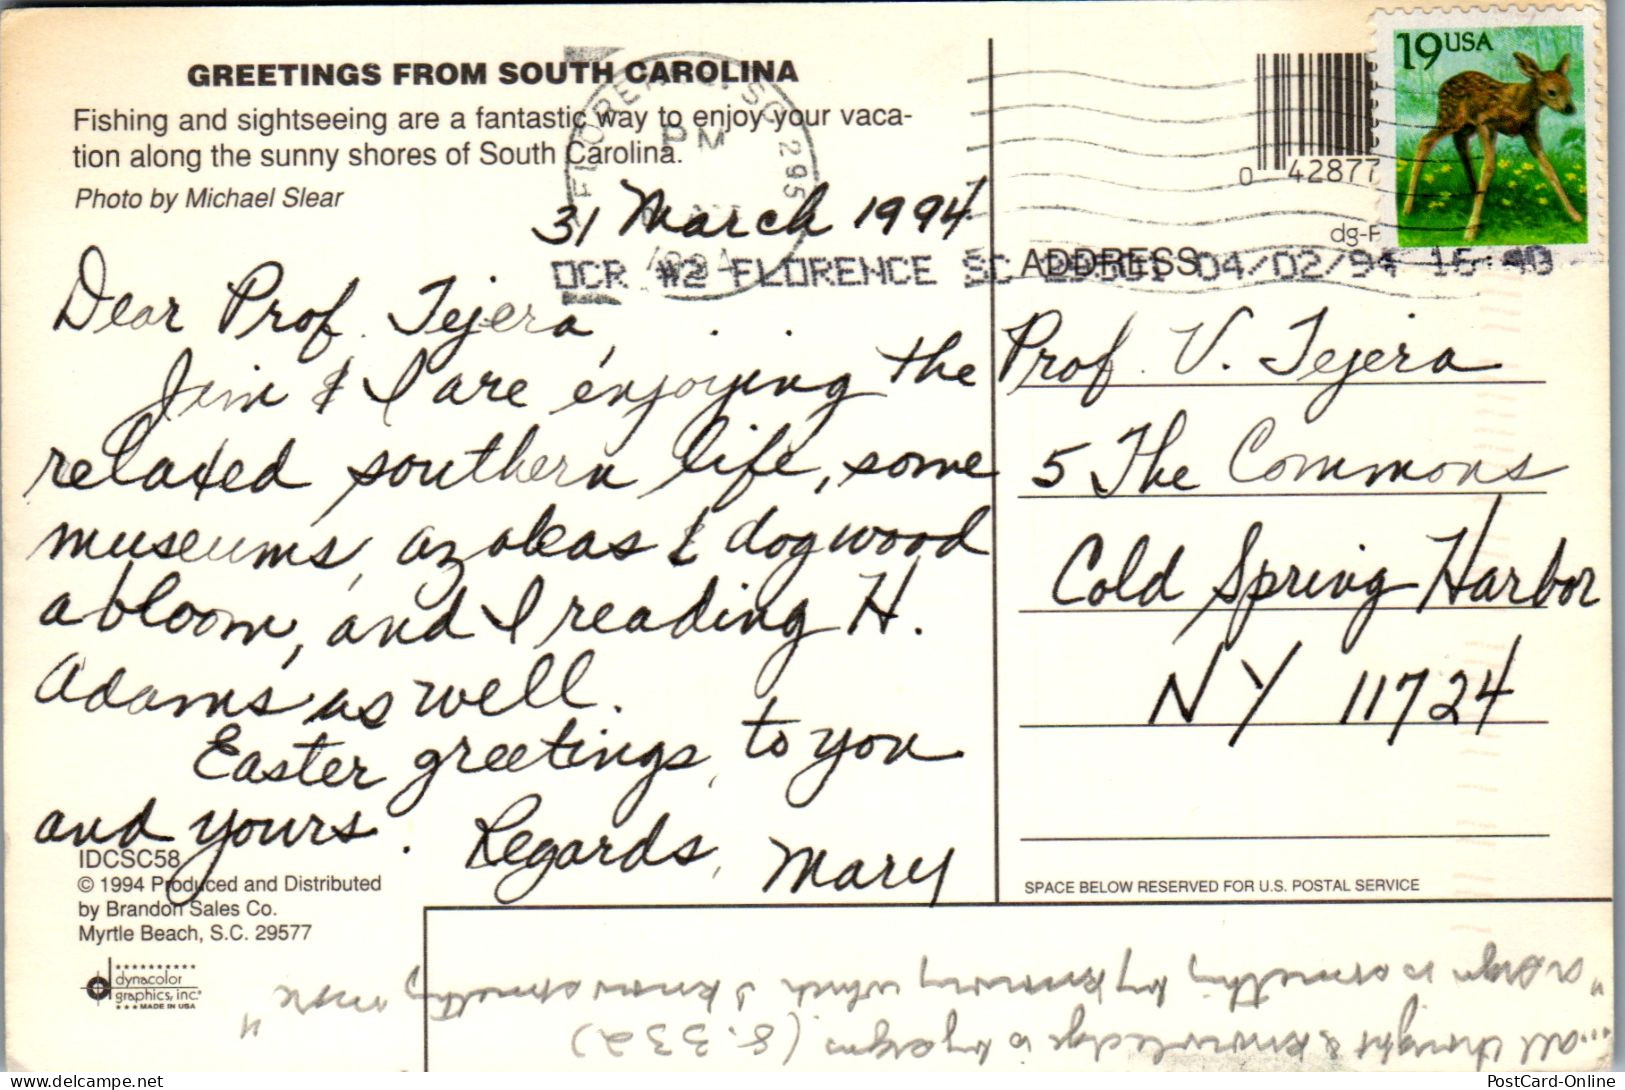 GREETINGS FROM SOUTH CAROLINA
Fishing and sightseeing are a fantastic way to enjoy your vaca-
tion along the sunny shores of South Carolina.
Photo by Michael Slear
FLORENCE, SC 295
PM
1994
19 USA
0 42877
dg-F
31 March 1994
OCR #2 FLORENCE SC 29501 04/02/94 16:40
ADDRESS
Dear Prof. Tejera,
Jim & I are enjoying the
relaxed southern life, some
museums, azaleas & dogwood
abloom, and I reading H.
Adams as well.
Easter greetings, to you
and yours. Regards, Mary
Prof. V. Tejera
5 The Commons
Cold Spring Harbor
NY 11724
IDCSC58
© 1994 Produced and Distributed
by Brandon Sales Co.
Myrtle Beach, S.C. 29577
dynacolor
graphics, inc.
MADE IN USA
SPACE BELOW RESERVED FOR U.S. POSTAL SERVICE
"...all thought & knowledge is by signs (8.332)
"a sign is something by knowing which I know something more"
PostCard-Online